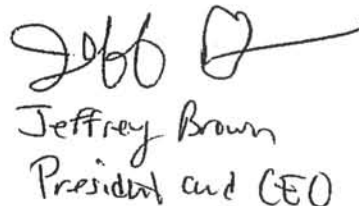 Jeff B
Jeffrey Brown
President and CEO